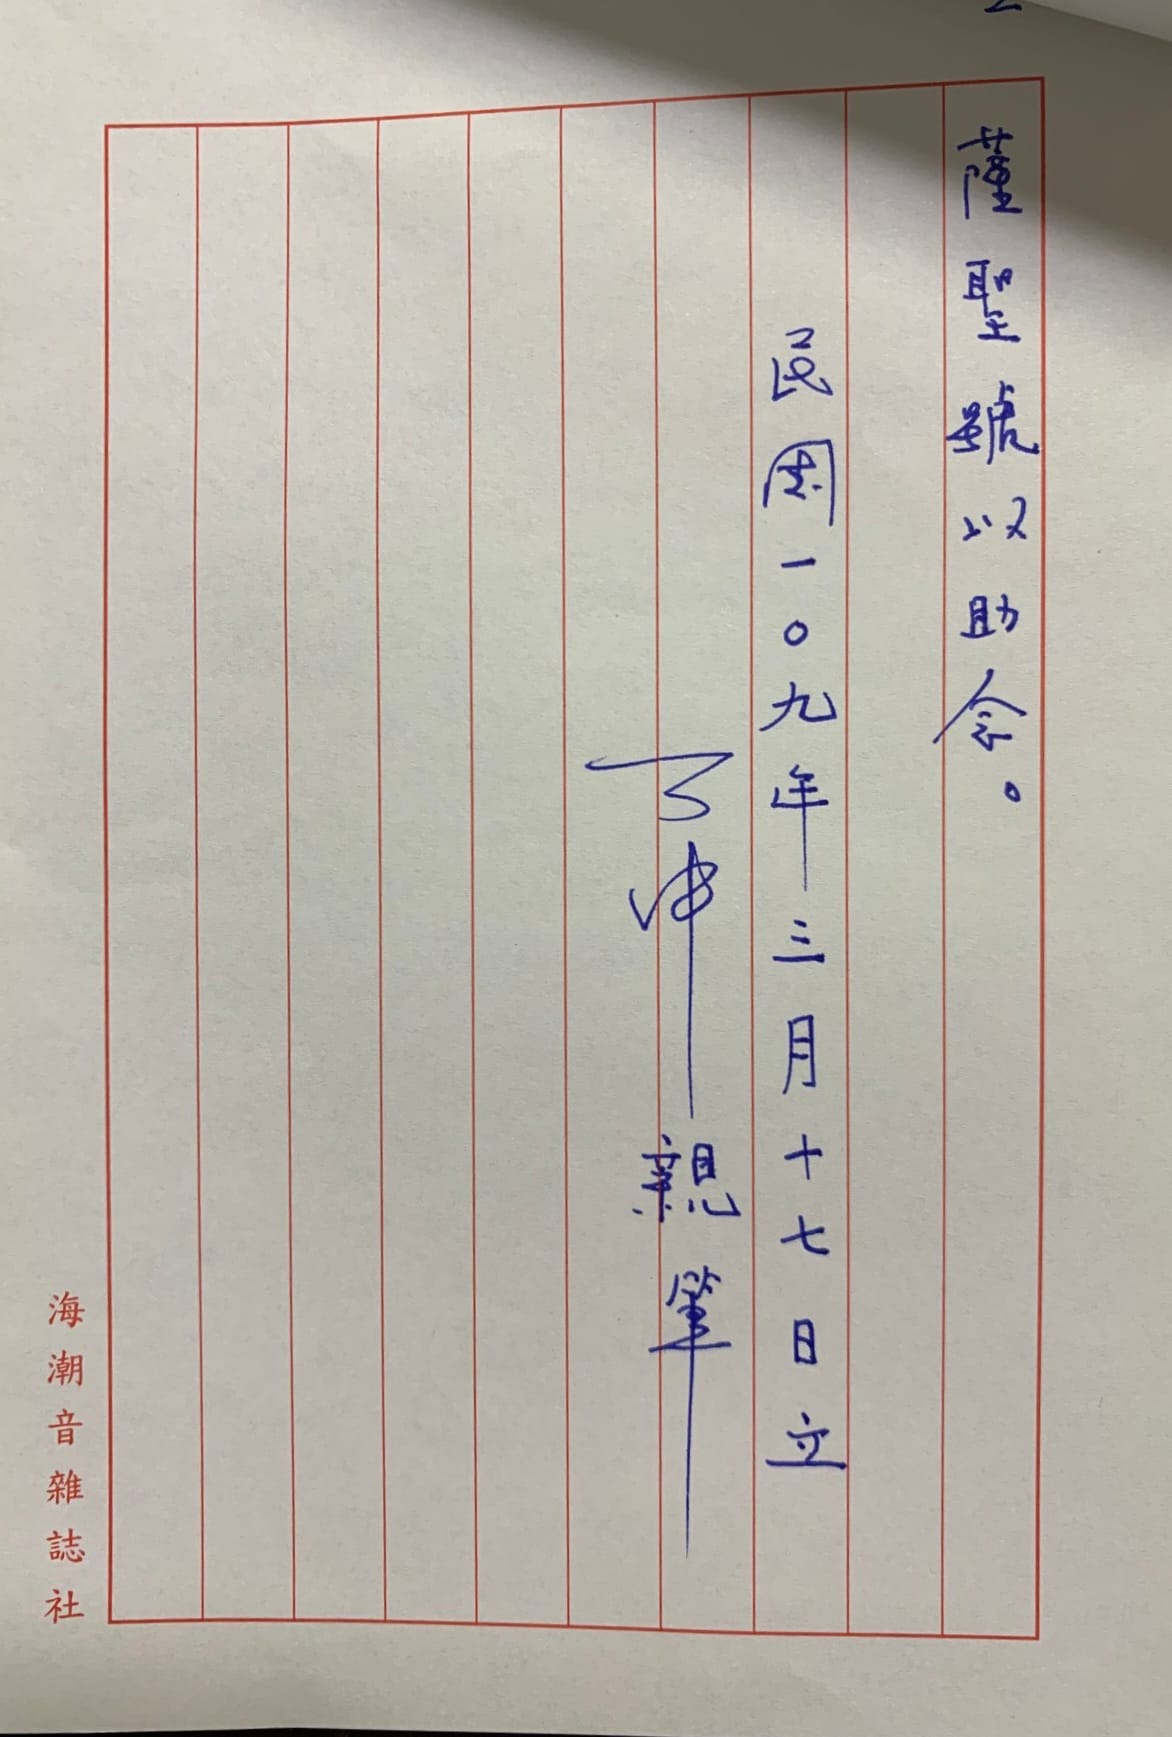 薩聖號以助念。
民國一〇九年三月十七日立
了中親筆
海潮音雜誌社